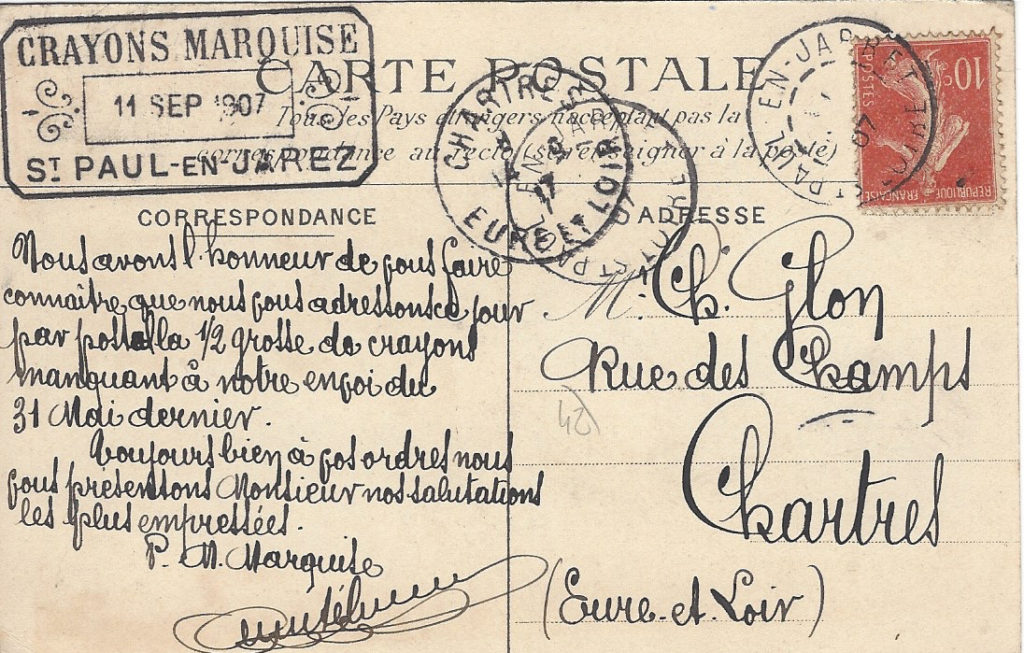 CRAYONS MARQUISE
11 SEP 1907
ST PAUL-EN-JAREZ
CARTE POSTALE
Tous les Pays étrangers n'acceptent pas la
correspondance au recto (se renseigner à la poste)
CHARTRES
EURE ET LOIR
ST PAUL EN-JARRET
LOIRE
07
ST PAUL EN JARRET
LOIRE
07
10c
POSTES
REPUBLIQUE FRANÇAISE
CORRESPONDANCE
Nous avons l'honneur de vous faire
connaître que nous vous adressons ce jour
par postal la 1/2 grosse de crayons
manquant à notre envoi du
31 Mai dernier.
Toujours bien à vos ordres nous
vous présentons Monsieur nos salutations
les plus empressées.
P. M. Marquise
ADRESSE
Mr Ch. Glon
Rue des Champs
Chartres
(Eure-et-Loir)
24